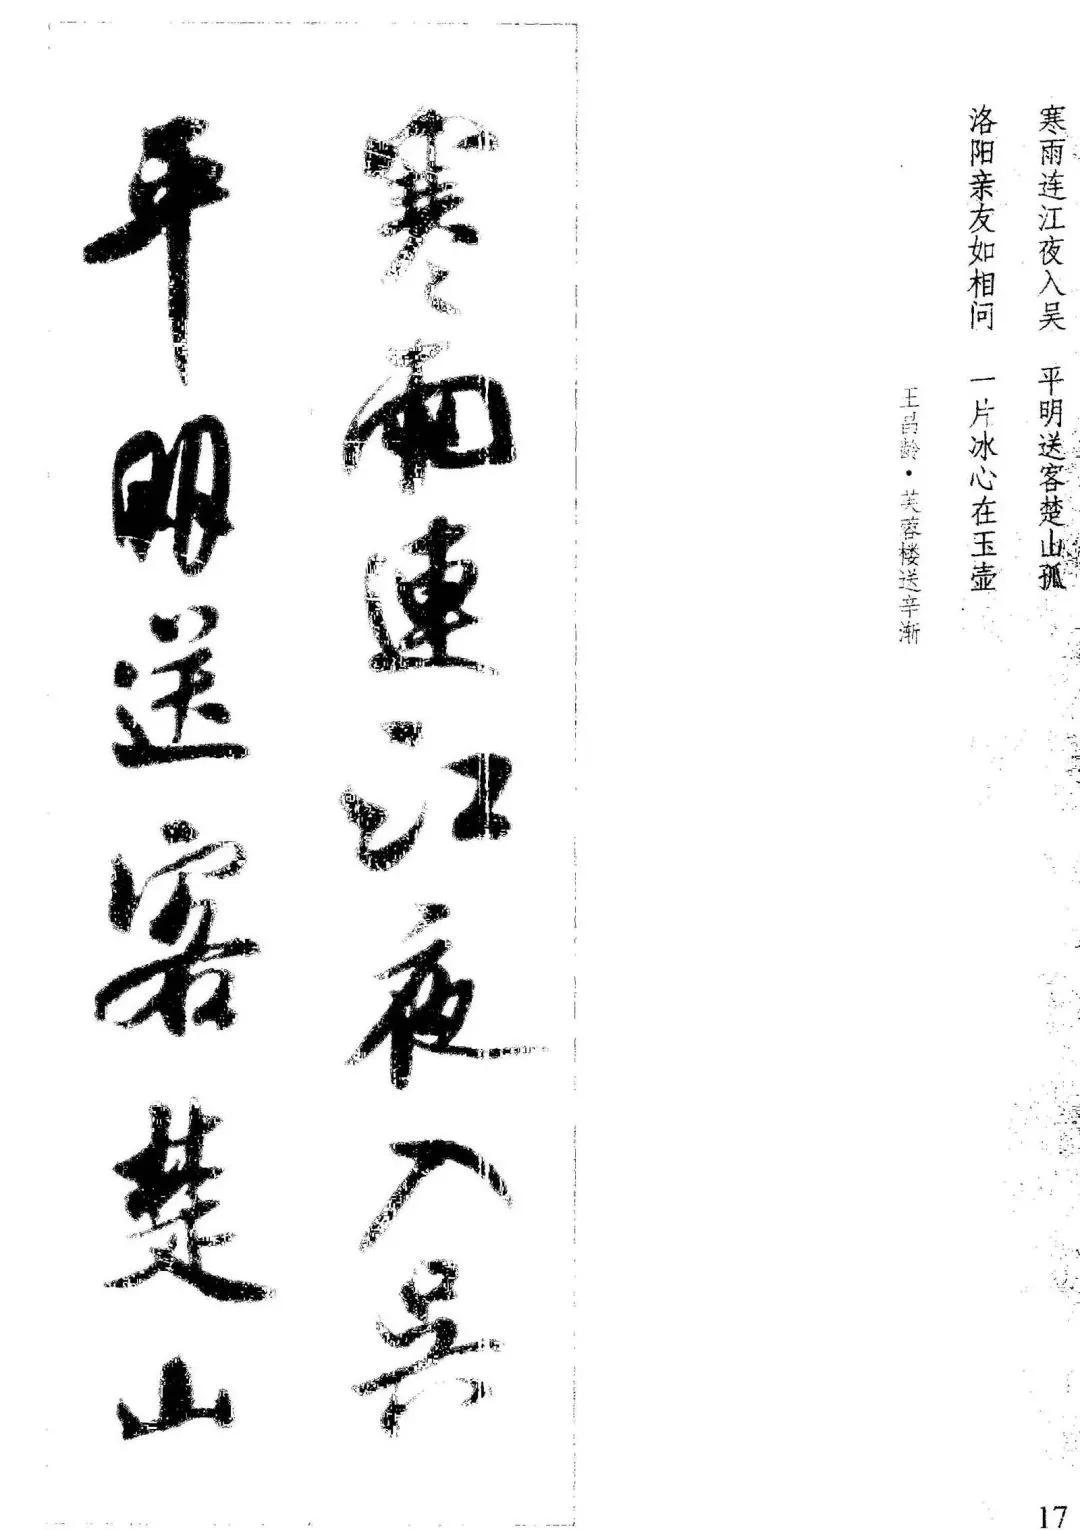 寒雨连江夜入吴　平明送客楚山孤
洛阳亲友如相问　一片冰心在玉壶
王昌龄·芙蓉楼送辛渐
寒雨連江夜入吳
平明送客楚山
17